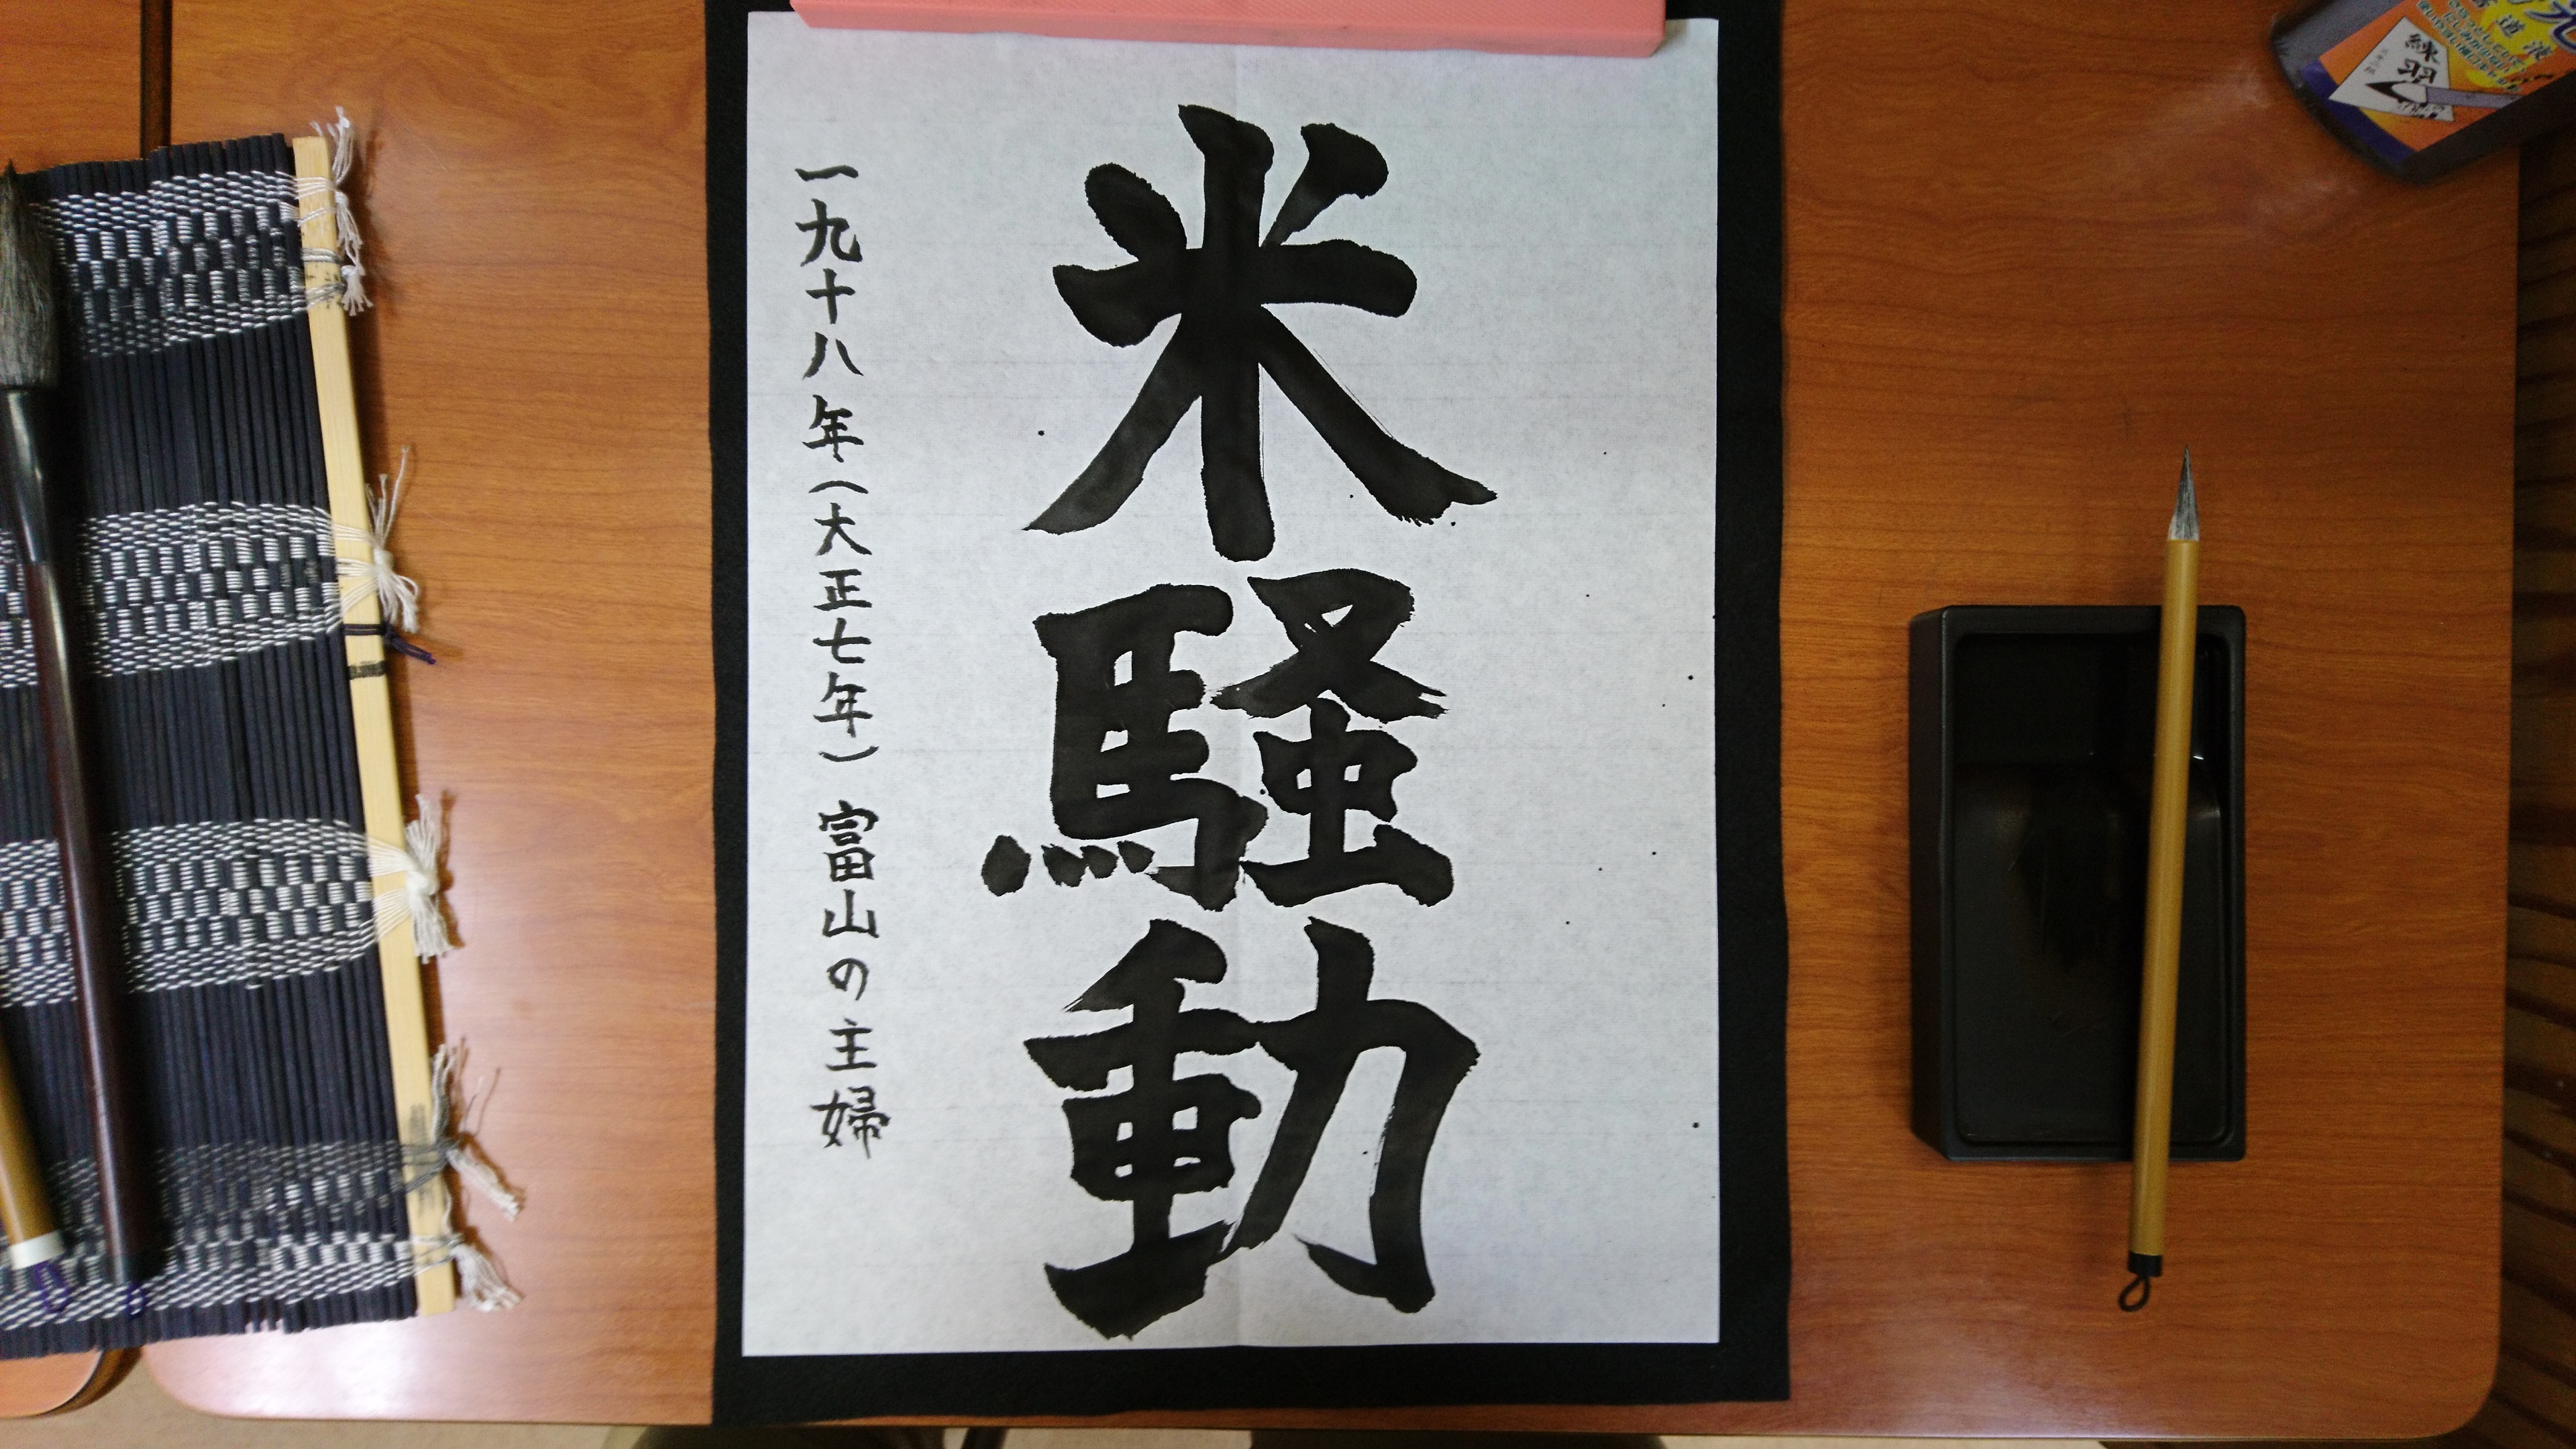 米騒動
一九十八年(大正七年) 富山の主婦
練習用